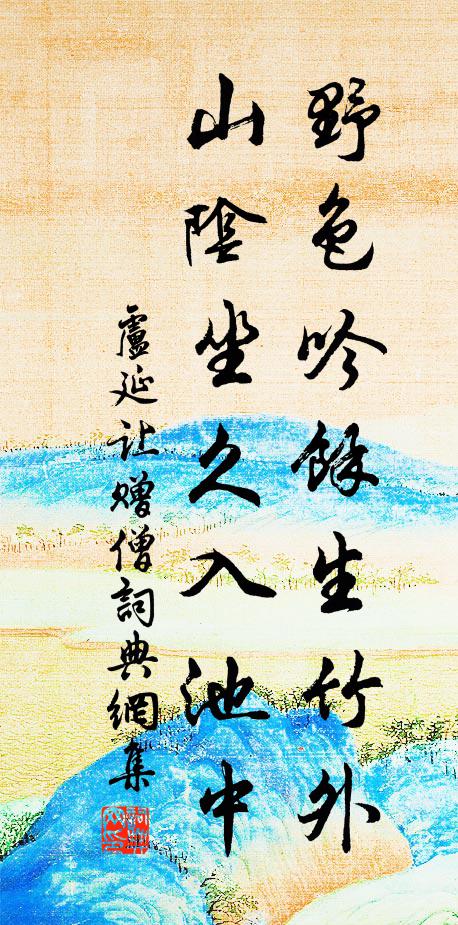 野色吟餘生竹外
山陰坐久入池中
盧延让赠僧詞典網集